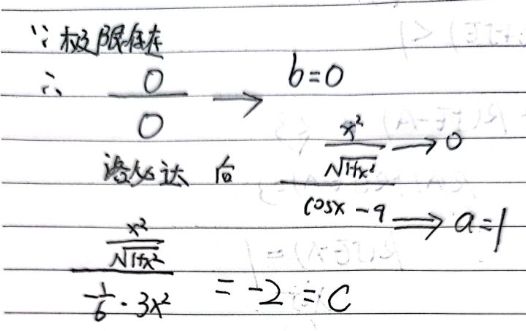 ∵ 极限存在
∴ 0/0 → b=0
洛必达 后 (x²/√(1+x²))/(cosx-a) → 0 ⟹ a=1
(x²/√(1+x²))/(-1/6·3x²) = -2 = C